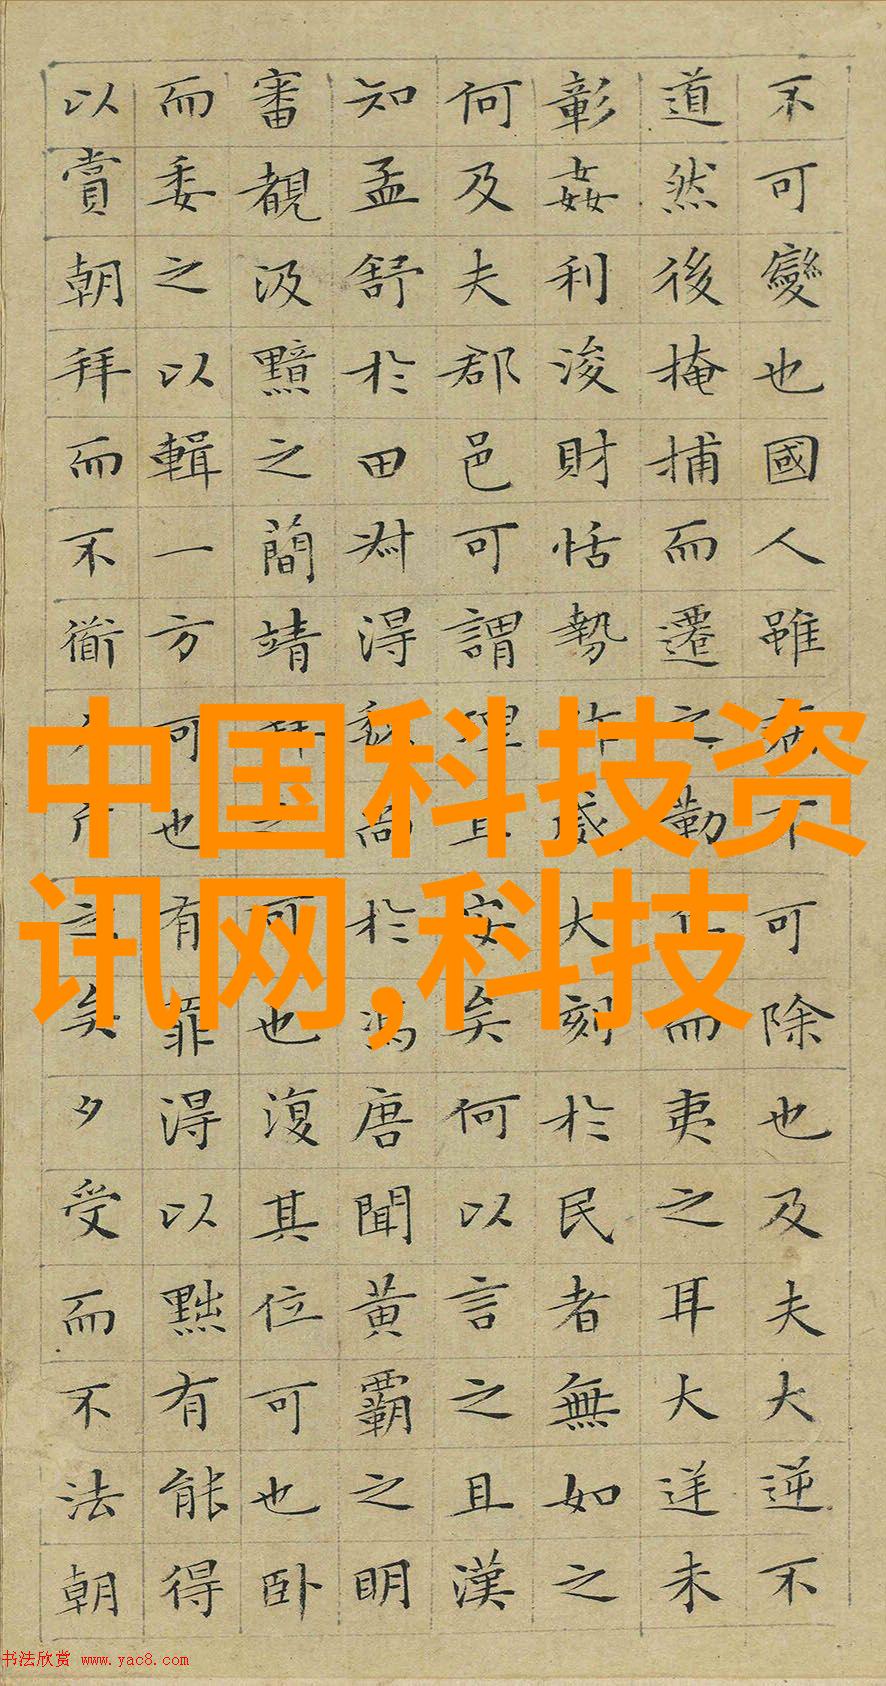 不可變也國人雖病不可除也及夫大逆不
道然後掩捕而遷之勒兵而夷之耳大逆未
彰姦利浚財恬勢作威大刻於民者無如之
何及夫郡邑可謂理且安矣何以言之且漢
知孟舒於田叔得魏尚於馮唐聞黃霸之明
審覩汲黯之簡靖拜之可也復其位可也臥
而委之以輯一方可也有罪得以黜有能得
以賞朝拜而不衜夕斥之矣夕受而不法朝
中国科技资
讯网,科技
书法欣赏 www.yac8.com